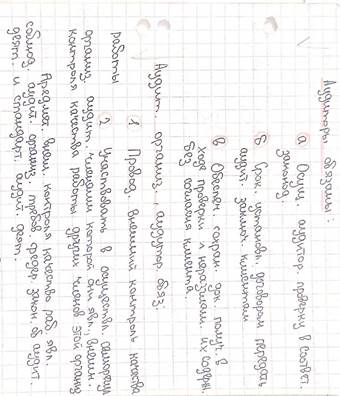 Аудиторы обязаны:
а Осущ. аудитор. проверку в соотвт.
законод.
б Срок, установл. договором передать
аудит. заключ. клиентам
в Обеспеч. сохран. док. получ. в
ходе проверки и неразглаш. их содерж.
без согласия клиента.
Аудит. организ., аудитор. обяз:
1 Провод. внешний контроль качества
работы
2 Участвовать в осуществ. саморегул
организ. аудит. членами которой они явл., внешн.
контроля качества работы других членов этой организ
Предмет. внеш. контроля качества раб явл.
соблюд. аудит. организ. требов. федер. закон. об аудит.
деят. и стандарт. аудит. деят.